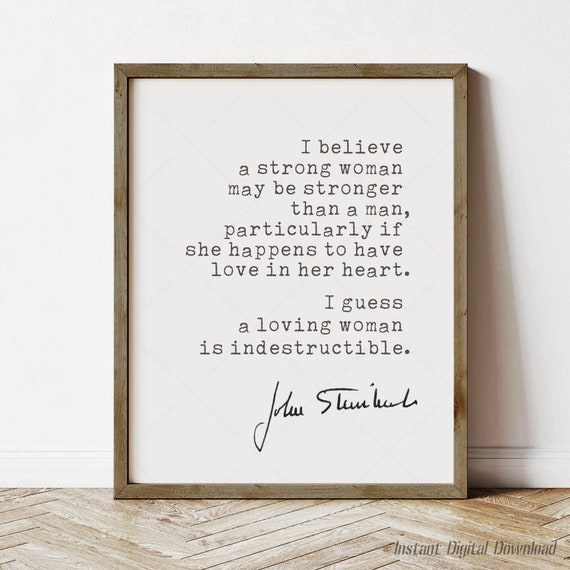 I believe
a strong woman
may be stronger
than a man,
particularly if
she happens to have
love in her heart.
I guess
a loving woman
is indestructible.
John Steinbeck
Instant Digital Download